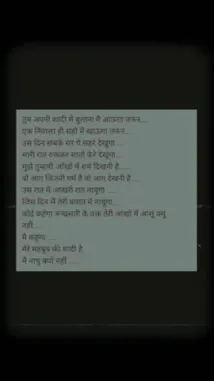 तुम अपनी शादी में बुलाना मैं आऊंगा जरूर....
एक निवाला ही सही मैं खाऊंगा जरूर....
उस दिन सबके सर पे सहरे देखूंगा ....
सारी रात रुककर सातों फेरे देखूंगा....
मुझे तुम्हारी आँखों में शर्म देखनी है.....
वो आग कितनी गर्म है वो आग देखनी है ....
उस रात मैं आखरी रात नाचूंगा ....
जिस दिन मैं तेरी बारात में नाचूंगा..
कोई कहेगा के वक्त तेरी आंखों में आंसू क्यू
नहीं.....
मैं कहूंगा .....
मेरे महबूब की शादी है
मैं नाचू क्यों नहीं .....